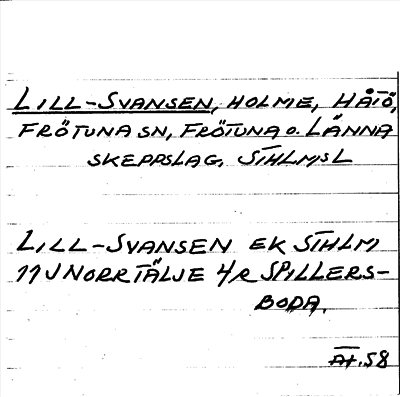 LILL-SVANSEN, HOLME, HÅTÖ,
FRÖTUNA SN, FRÖTUNA O. LÄNNA
SKEPPSLAG, STHLMSL
LILL-SVANSEN EK STHLM
11J NORRTÄLJE 4/R SPILLERS-
BODA.
AT.58